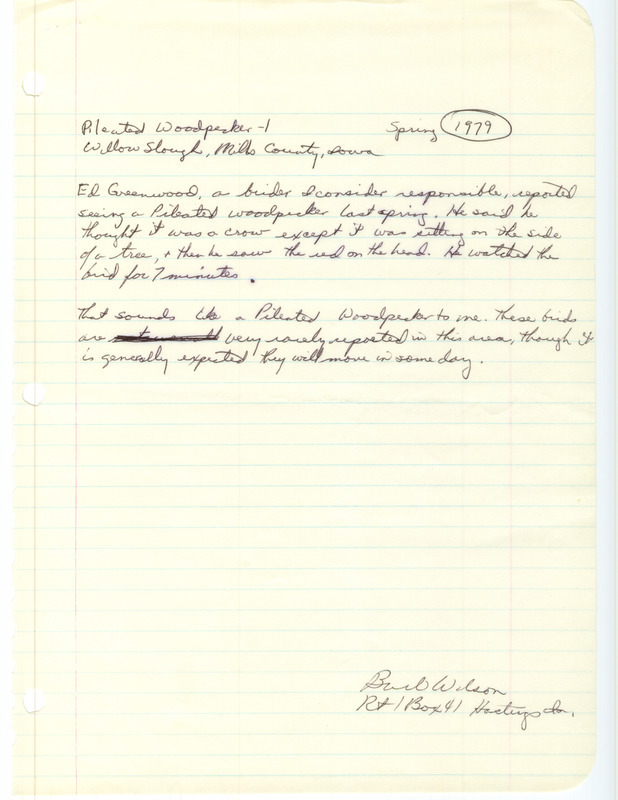 Pileated Woodpecker-1 Spring 1979
Willow Slough, Mills County, Iowa
Ed Greenwood, a birder I consider responsible, reported
seeing a Pileated woodpecker last spring. He said he
thought it was a crow except it was sitting on the side
of a tree, + then he saw the red on the head. He watched the
bird for 7 minutes.
That sounds like a Pileated Woodpecker to me. These birds
are very rarely reported in this area, though it
is generally expected they will move in some day.
Barb Wilson
Rt 1 Box 41 Hastings Ia.